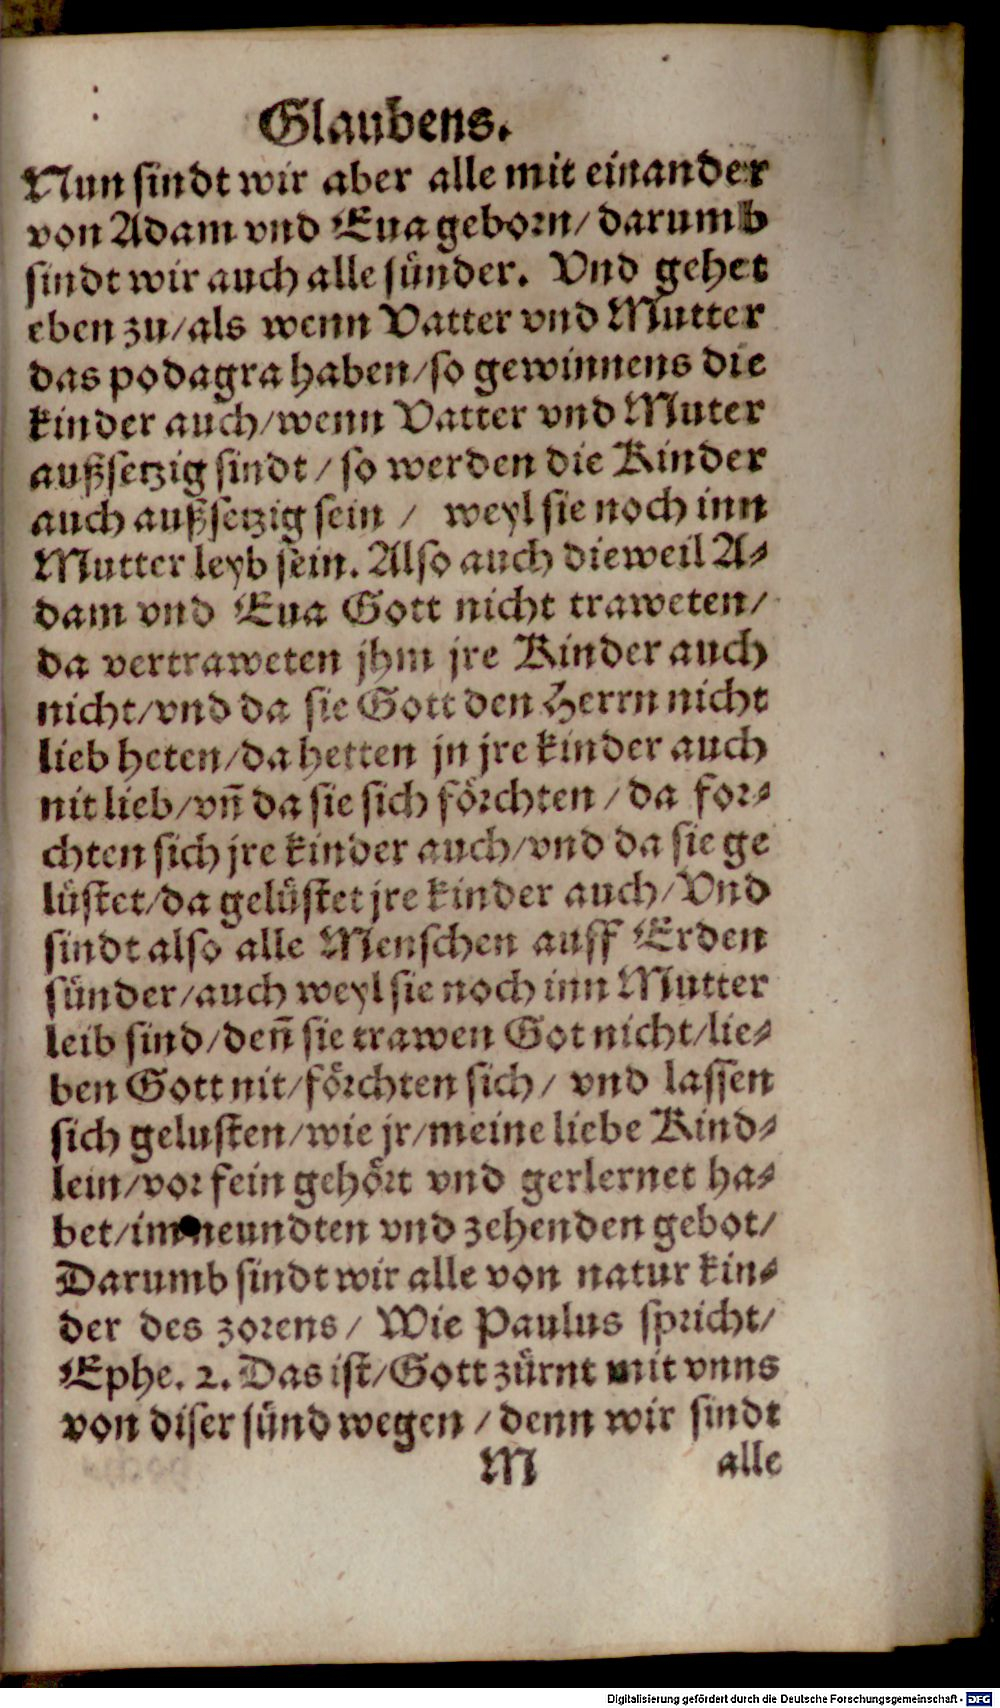 Glaubens.
Nun sindt wir aber alle mit einander
von Adam vnd Eua geborn/ darumb
sindt wir auch alle sünder. Vnd gehet
eben zu/als wenn Vatter vnd Mutter
das podagra haben/so gewinnens die
kinder auch/wenn Vatter vnd Muter
außsetzig sindt / so werden die Kinder
auch außsetzig sein / weyl sie noch inn
Mutter leyb sein. Also auch dieweil A-
dam vnd Eua Gott nicht traweten/
da vertraweten jhm jre Kinder auch
nicht/vnd da sie Gott den Herrn nicht
lieb heten/da hetten jn jre kinder auch
nit lieb/vñ da sie sich förchten / da for-
chten sich jre kinder auch/vnd da sie ge
lüstet/da gelüstet jre kinder auch/Vnd
sindt also alle Menschen auff Erden
sünder/auch weyl sie noch inn Mutter
leib sind/deñ sie trawen Got nicht/lie-
ben Gott nit/förchten sich/ vnd lassen
sich gelusten/wie jr/meine liebe Kind-
lein/vor fein gehört vnd gerlernet ha-
bet/im neundten vnd zehenden gebot/
Darumb sindt wir alle von natur kin-
der des zorens/ Wie Paulus spricht/
Ephe. 2. Das ist/Gott zürnt mit vnns
von diser sünd wegen / denn wir sindt
M alle
Digitalisierung gefördert durch die Deutsche Forschungsgemeinschaft - DFG